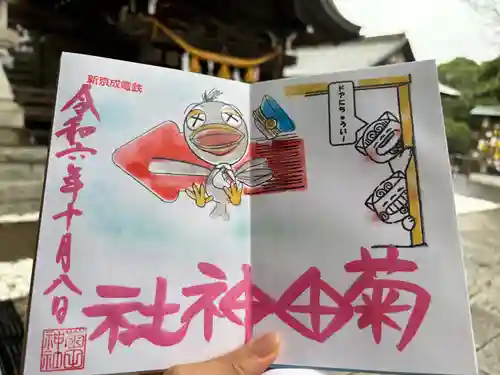 新京成電鉄
ドアにちゅうい
菊田神社
令和六年十月八日
菊田
神社